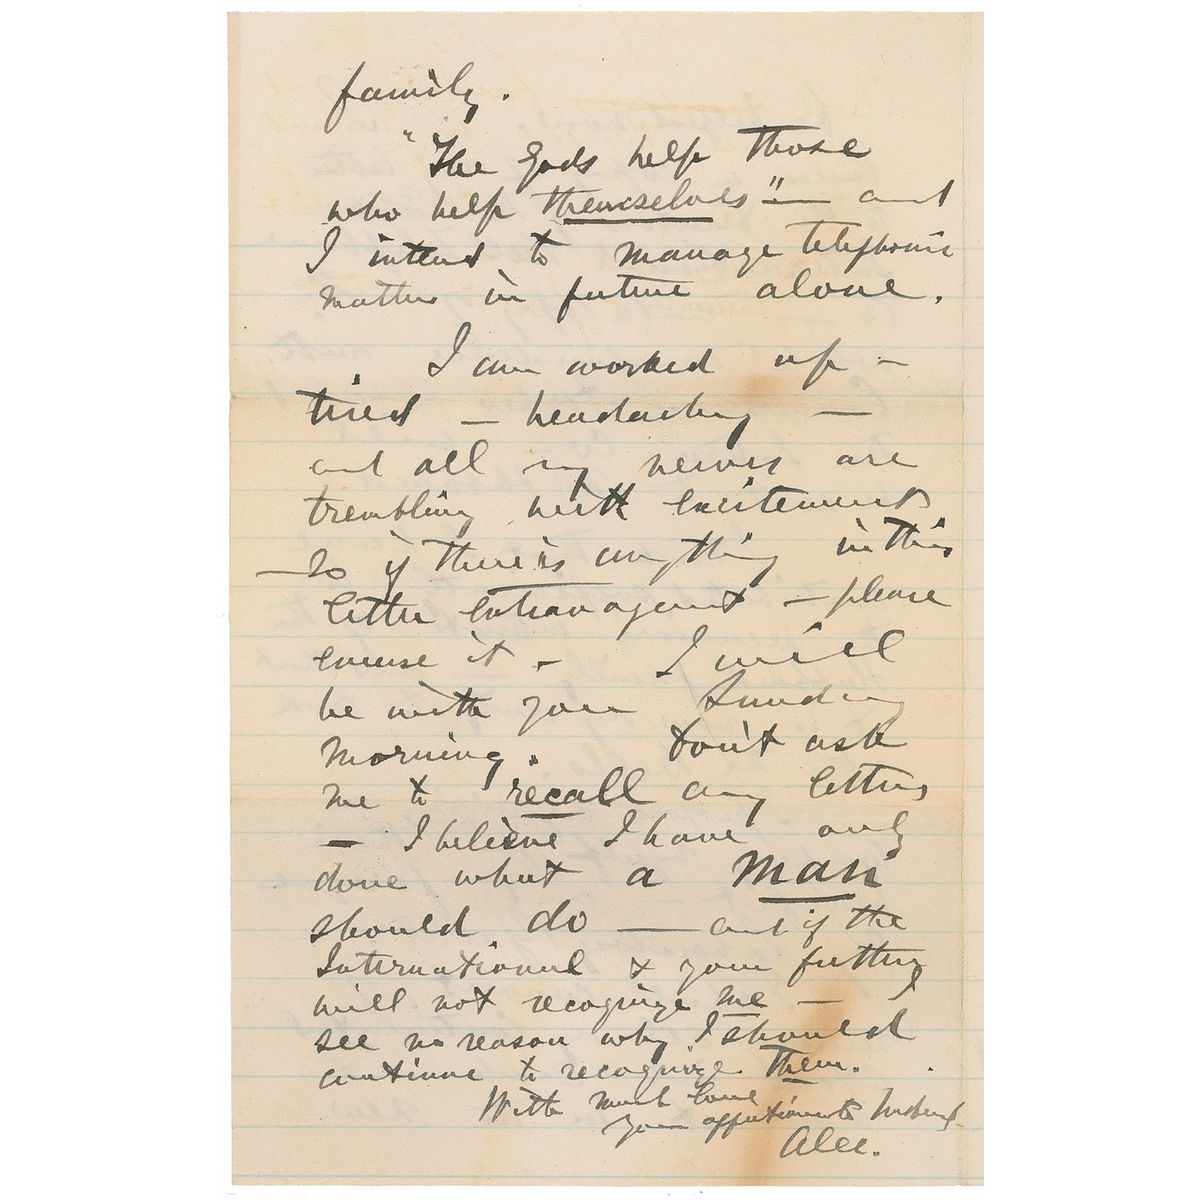 family.
"The Gods help those
who help themselves" — and
I intend to manage telephonic
matters in future alone.
I am worked up —
tired — headachy —
and all my nerves are
trembling with excitement
— So if there is anything in this
letter extravagant — please
excuse it — I will
be with you Sunday
morning. Don't ask
me to recall any letters
— I believe I have only
done what a man
should do — and if the
International & your father
will not recognize me — I
see no reason why I should
continue to recognize them.
With much love
your affectionate husband
Alec.